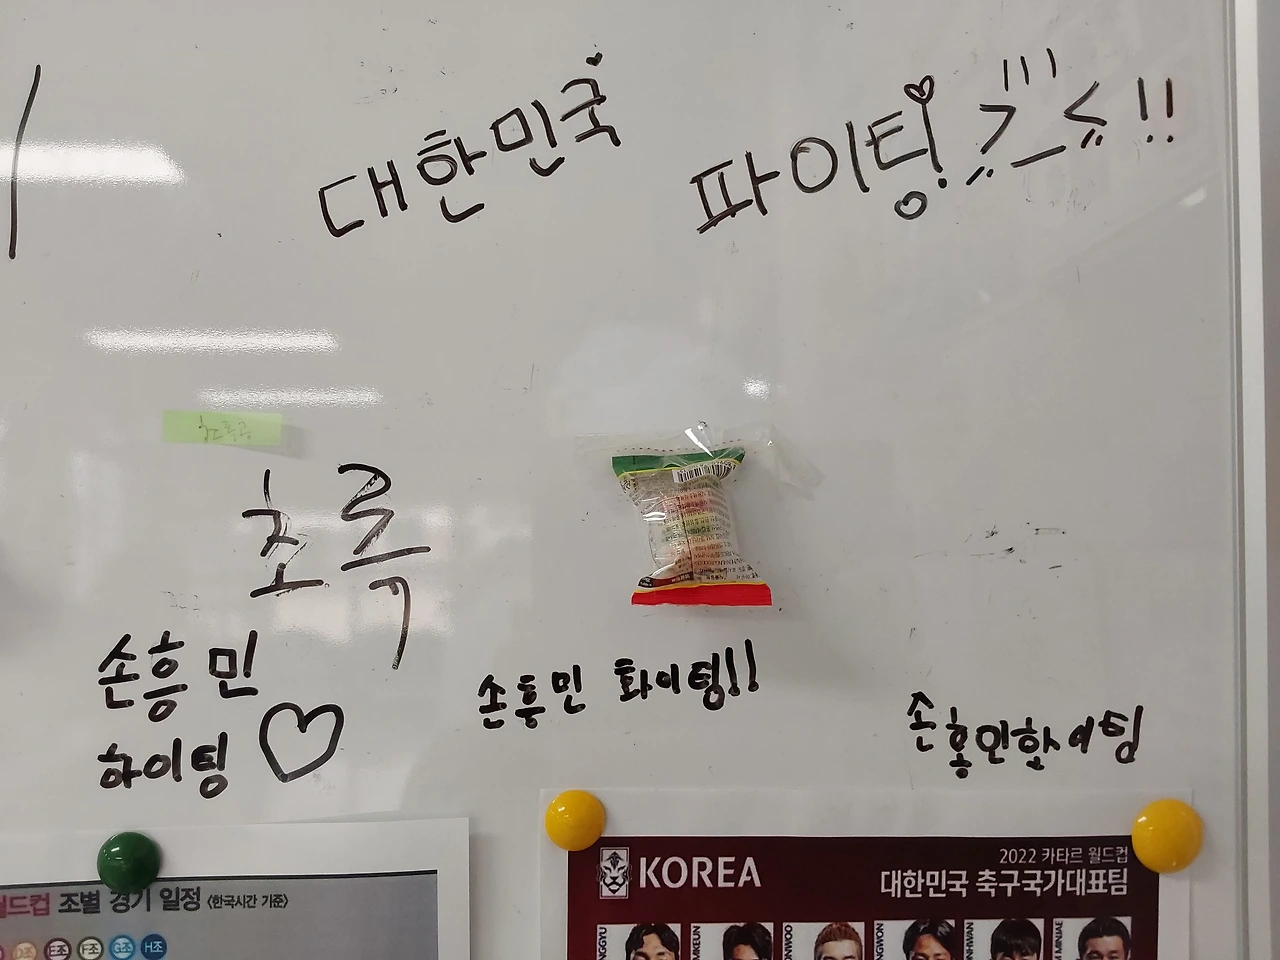 대한민국 파이팅 >_< !!
초록
손흥민
하이팅 ♡
손흥민 화이팅!!
손흥민화이팅
월드컵 조별 경기 일정 <한국시간 기준>
D조 E조 F조 G조 H조
KOREA
2022 카타르 월드컵
대한민국 축구국가대표팀